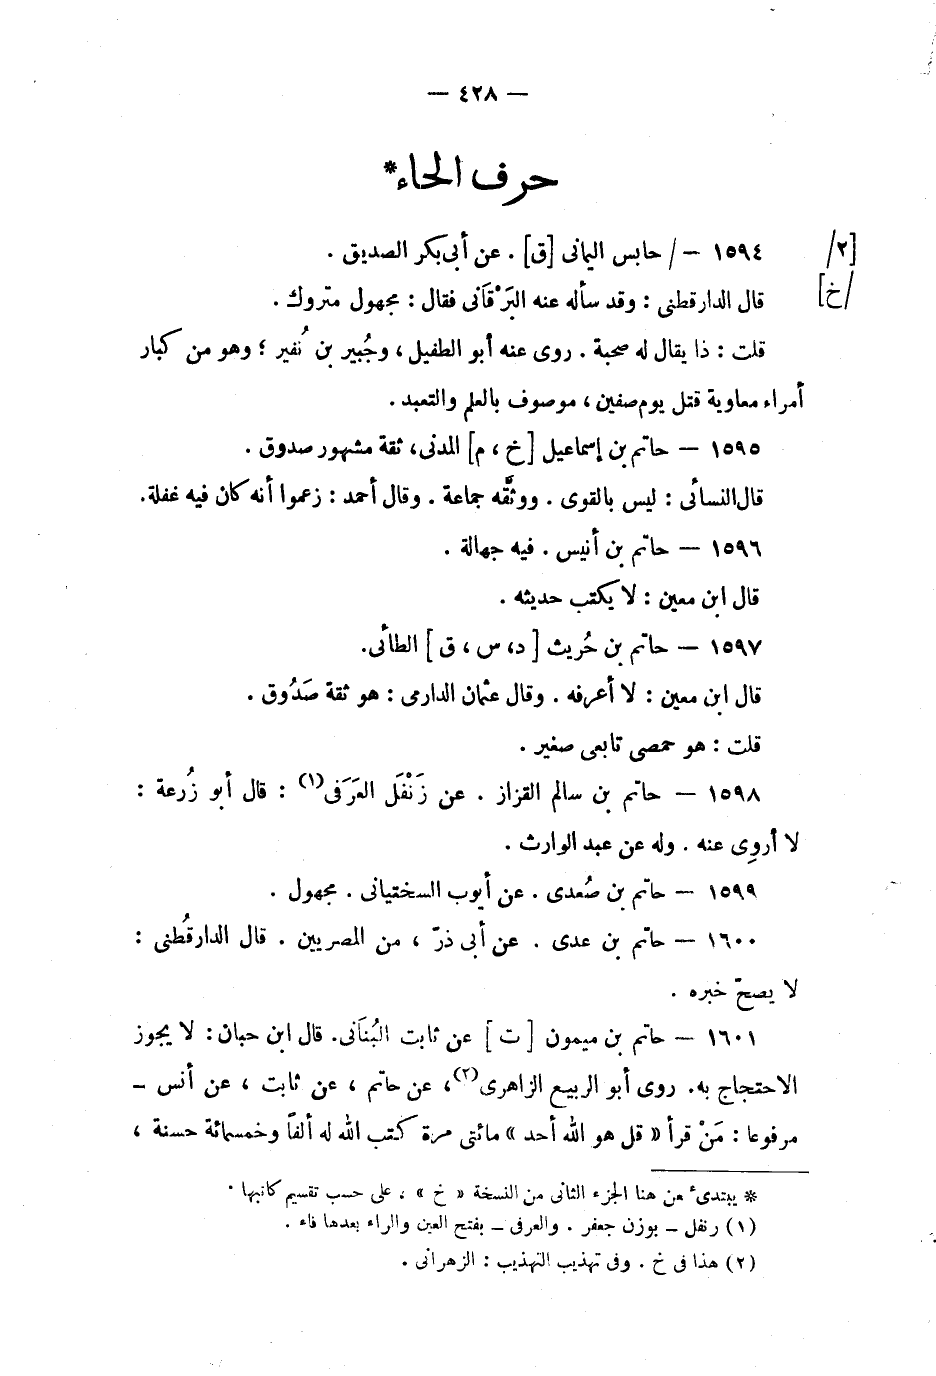 — ٤٢٨ —
حرف الحاء*
[٢/ ١٥٩٤ — / حابس اليمانى [ق] . عن أبى بكر الصديق .
/خ] قال الدارقطنى : وقد سأله عنه البَرْقَانى فقال : مجهول متروك .
قلت : ذا يقال له صحبة . روى عنه أبو الطفيل ، وجُبير بن نُفير ؛ وهو من كبار
أمراء معاوية قتل يوم صفين ، موصوف بالعلم والتعبد .
١٥٩٥ — حاتم بن إسماعيل [خ ، م] المدنى، ثقة مشهور صدوق .
قال النسائى : ليس بالقوى . ووثَّقه جماعة . وقال أحمد : زعموا أنه كان فيه غفلة.
١٥٩٦ — حاتم بن أنيس . فيه جهالة .
قال ابن معين : لا يكتب حديثه .
١٥٩٧ — حاتم بن حُريث [ د، س ، ق ] الطائى.
قال ابن معين : لا أعرفه . وقال عثمان الدارمى : هو ثقة صَدُوق .
قلت : هو حمصى تابعى صغير .
١٥٩٨ — حاتم بن سالم القزاز . عن زَنْفَل العَرَفى(١) : قال أبو زُرعة :
لا أروِى عنه . وله عن عبد الوارث .
١٥٩٩ — حاتم بن صُعدى . عن أيوب السختيانى . مجهول .
١٦٠٠ — حاتم بن عدى . عن أبى ذرّ ، من المصريين . قال الدارقُطنى :
لا يصحّ خبره .
١٦٠١ — حاتم بن ميمون [ ت ] عن ثابت البُنَانى. قال ابن حبان : لا يجوز
الاحتجاج به. روى أبو الربيع الزاهرى(٢)، عن حاتم ، عن ثابت ، عن أنس —
مرفوعا : مَنْ قرأ « قل هو الله أحد » مائتى مرة كتب الله له ألفاً وخمسمائة حسنة ،
* يبتدىء من هنا الجزء الثانى من النسخة « خ » ، على حسب تقسيم كاتبها .
(١) زنفل — بوزن جعفر . والعرفى — بفتح العين والراء بعدها فاء .
(٢) هذا فى خ . وفى تهذيب التهذيب : الزهرانى .